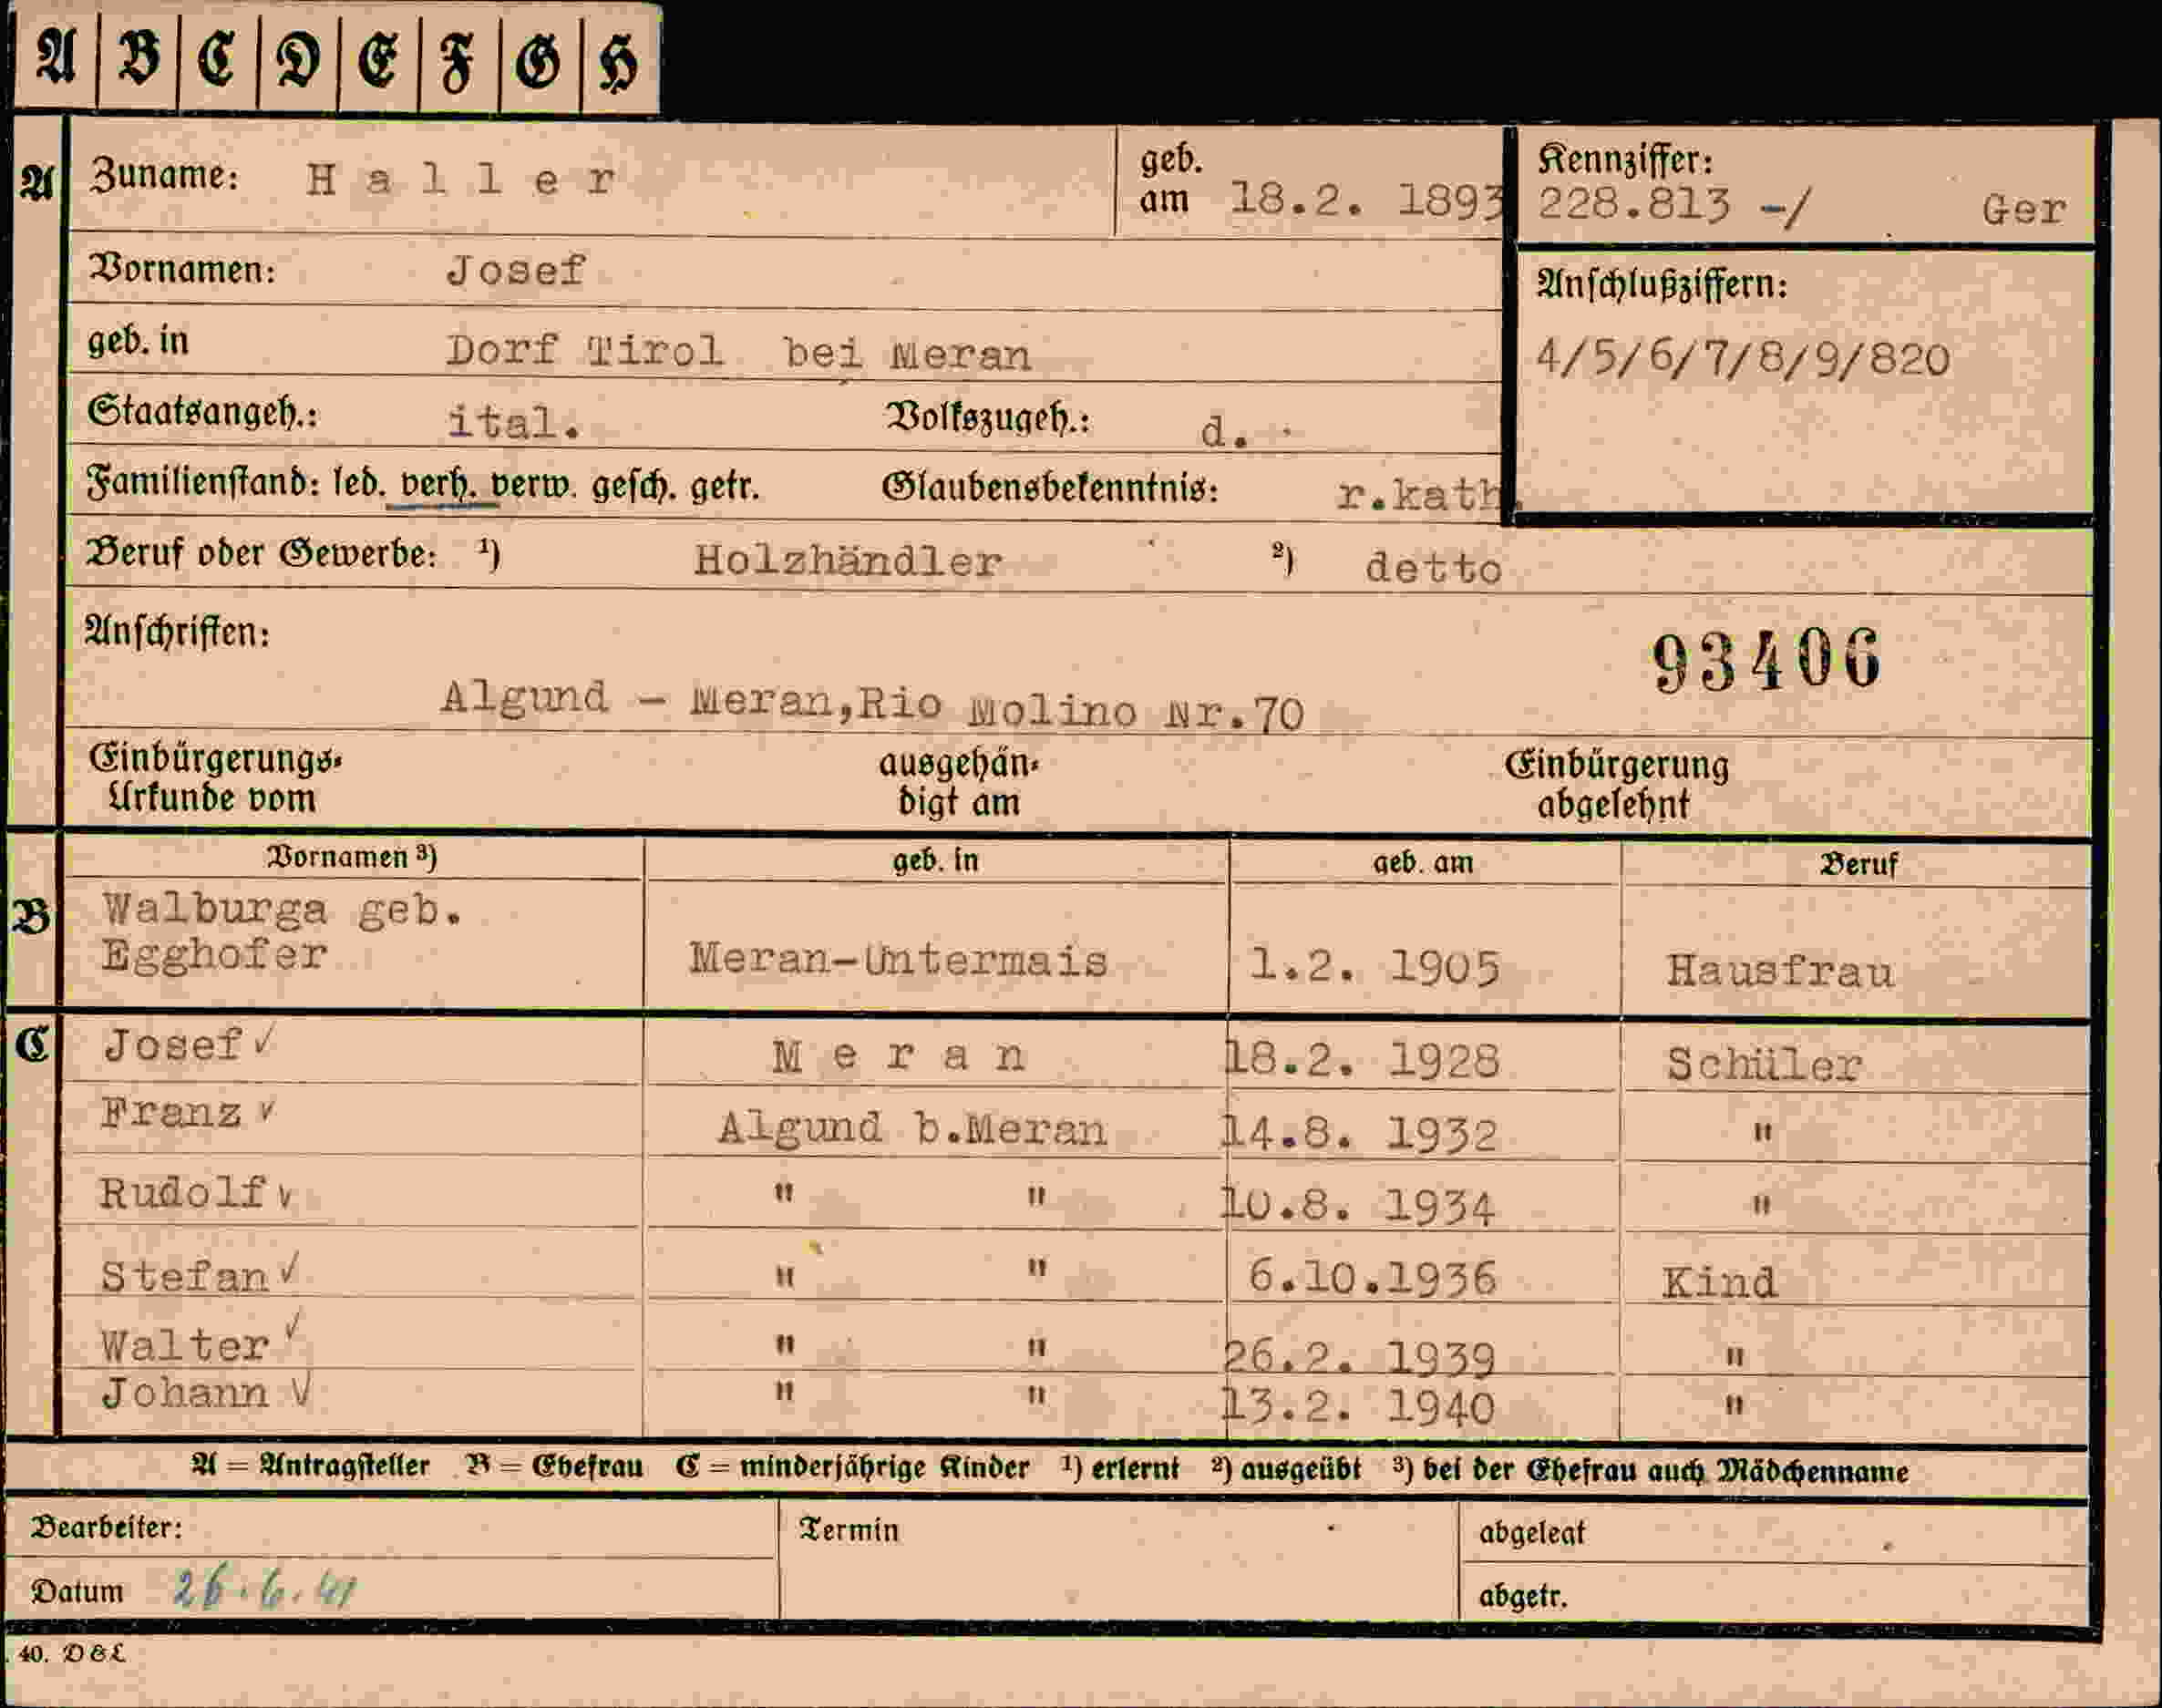 A B C D E F G H
A Zuname: Haller geb. am 18.2. 1893 Kennziffer: 228.813 -/ Ger
Vornamen: Josef
Anschlußziffern:
geb. in Dorf Tirol bei Meran
4/5/6/7/8/9/820
Staatsangeh.: ital. Volkszugeh.: d.
Familienstand: led. verh. verw. gesch. getr. Glaubensbekenntnis: r.kath.
Beruf oder Gewerbe: ¹) Holzhändler ²) detto
Anschriften:
93406
Algund - Meran,Rio Molino Nr.70
Einbürgerungs- ausgehän- Einbürgerung
Urkunde vom digt am abgelehnt
Vornamen ³) geb. in geb. am Beruf
B Walburga geb.
Egghofer Meran-Untermais 1.2. 1905 Hausfrau
C Josef ✓ Meran 18.2. 1928 Schüler
Franz ✓ Algund b.Meran 14.8. 1932 "
Rudolf ✓ " " 10.8. 1934 "
Stefan ✓ " " 6.10.1936 Kind
Walter ✓ " " 26.2. 1939 "
Johann ✓ " " 13.2. 1940 "
A = Antragsteller B = Ehefrau C = minderjährige Kinder ¹) erlernt ²) ausgeübt ³) bei der Ehefrau auch Mädchenname
Bearbeiter: Termin abgelegt
Datum 26.6.41 abgetr.
40. D&L